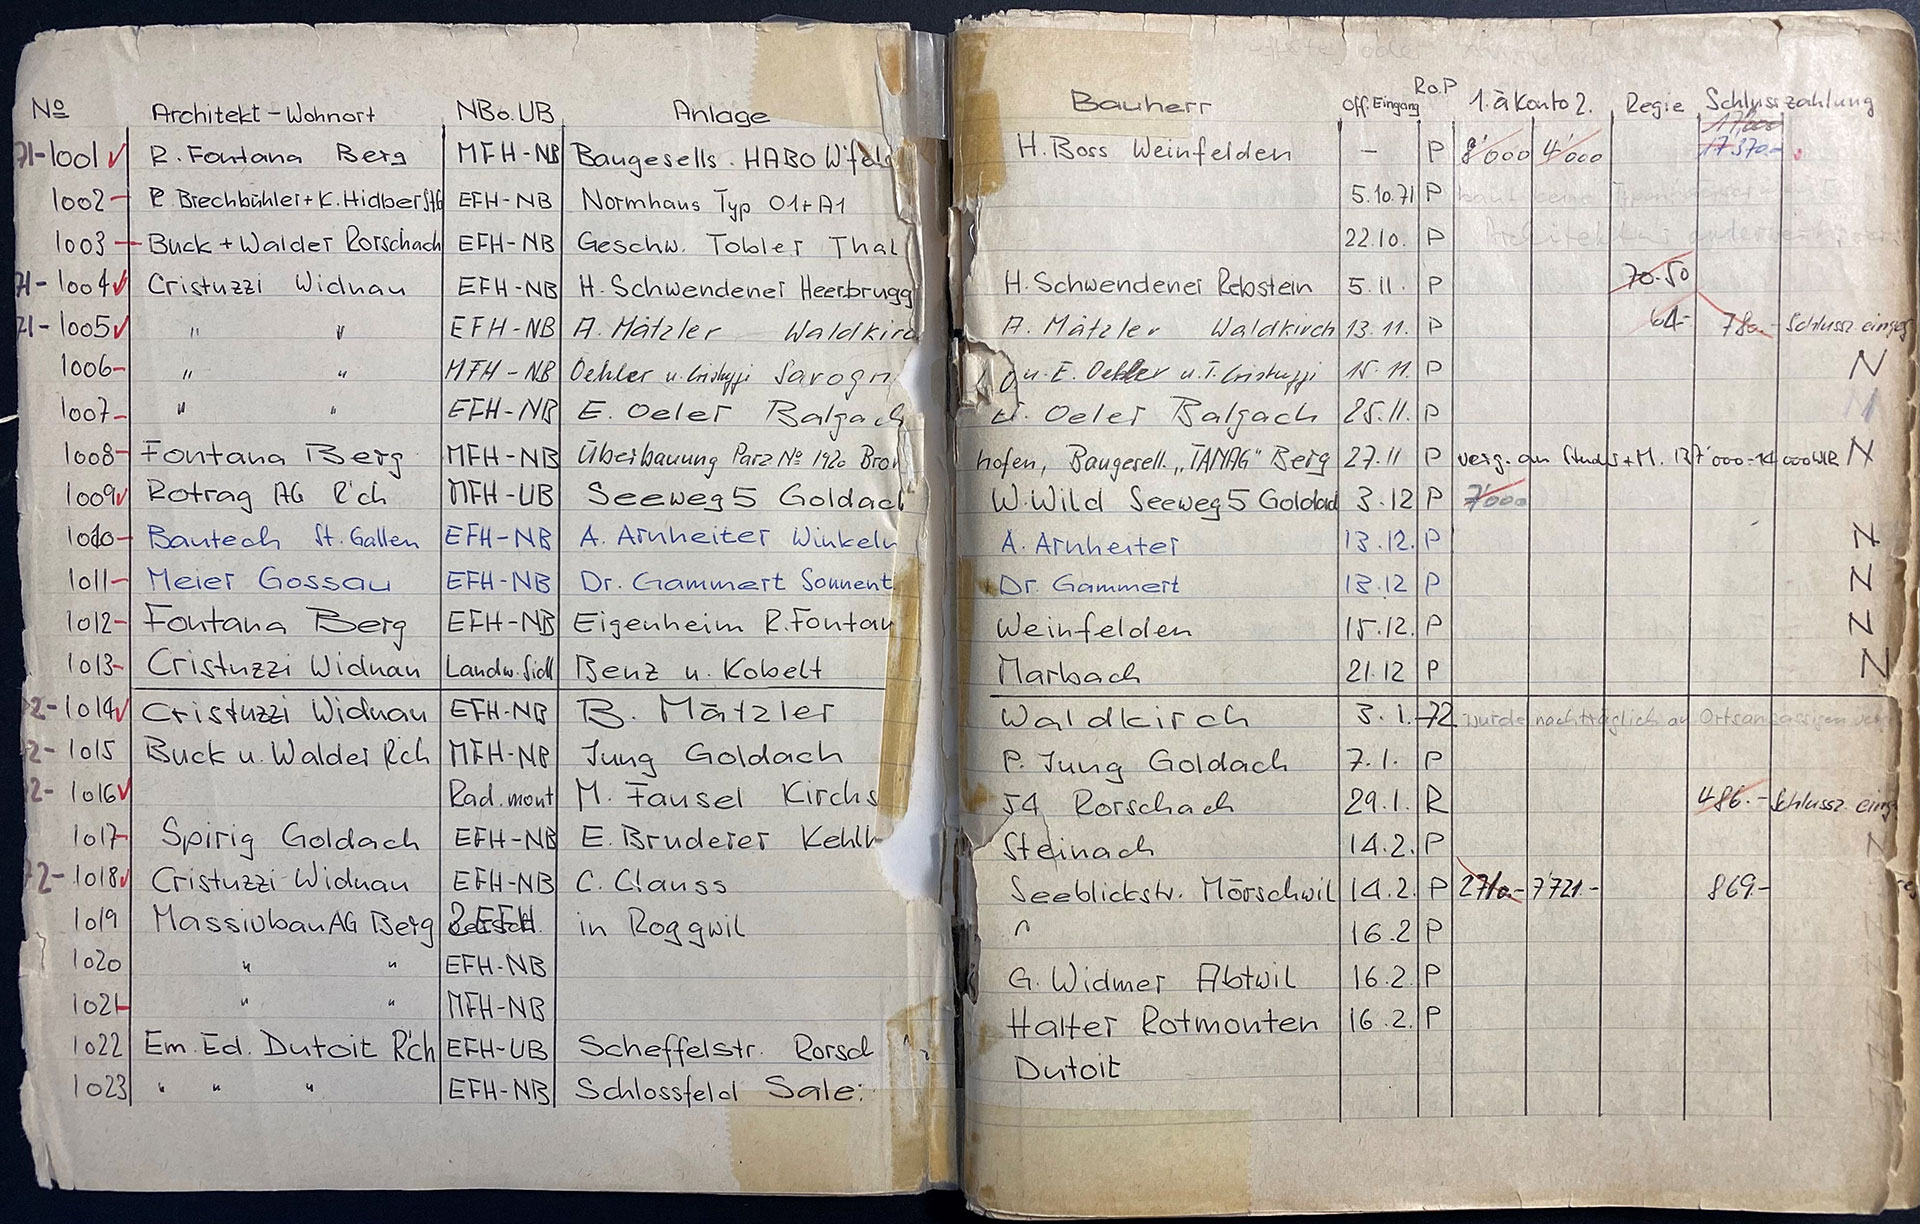 No Architekt-Wohnort NBo.UB Anlage Bauherr Off.Eingang R.o.P 1. à Konto 2. Regie Schlusszahlung
17'000
71-1001 R. Fontana Berg MFH-NB Baugesells. HABO W'feld H. Boss Weinfelden - P 8'000 4'000 17'370.-
1002 Brechbühler + K. Hidber EFH-NB Normhaus Typ 01+A1 5.10.71 P
1003 Buck + Walder Rorschach EFH-NB Geschw. Tobler Thal 22.10. P
71-1004 Cristuzzi Widnau EFH-NB H. Schwendener Heerbrugg H. Schwendener Rebstein 5.11. P 70.50
71-1005 " " EFH-NB A. Mätzler Waldkirc A. Mätzler Waldkirch 13.11. P 64.- 780.- Schlussz. einge
1006 " " MFH-NB Oehler u. Cristuzzi u. E. Oehler u. T. Cristuzzi 15.11. P N
1007 " " EFH-NB E. Oeler Balgach Oeler Balgach 25.11. P
1008 Fontana Berg MFH-NB Überbauung Parz No 1920 Bron hofen, Baugesell. "TANAG" Berg 27.11 P verg. an N
1009 Rotrag AG R'ch MFH-UB Seeweg 5 Goldach W. Wild Seeweg 5 Goldach 3.12 P 7'000
1010 Bautech St. Gallen EFH-NB A. Arnheiter Winkeln A. Arnheiter 13.12. P N
1011 Meier Gossau EFH-NB Dr. Gammert Sonnent Dr. Gammert 13.12 P N
1012 Fontana Berg EFH-NB Eigenheim R. Fontan Weinfelden 15.12. P N
1013 Cristuzzi Widnau Landw. Sidl Benz u. Kobelt Marbach 21.12 P N
72-1014 Cristuzzi Widnau EFH-NB B. Mätzler Waldkirch 3.1.-72 wurde nachträglich an Ortsansässigen
72-1015 Buck u. Walder R'ch MFH-NB Jung Goldach P. Jung Goldach 7.1. P
72-1016 Rad.mont M. Fausel Kirchs 54 Rorschach 29.1. R 486.- Schlussz. eing
1017 Spirig Goldach EFH-NB E. Bruderer Kehlh Steinach 14.2. P
72-1018 Cristuzzi Widnau EFH-NB C. Clauss Seeblickstr. Mörschwil 14.2. P 7'721.- 869.-
1019 Massivbau AG Berg 2 EFH in Roggwil 16.2 P
1020 " " EFH-NB G. Widmer Abtwil 16.2. P
1021 " " MFH-NB Halter Rotmonten 16.2. P
1022 Em. Ed. Dutoit R'ch EFH-UB Scheffelstr. Rorsch Dutoit
1023 " " " EFH-NB Schlossfeld Sale: